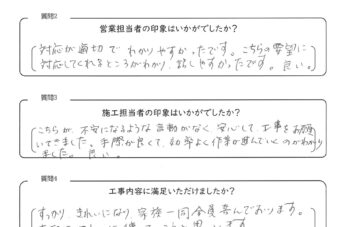 質問2
営業担当者の印象はいかがでしたか？
対応が適切で わかりやすかったです。こちらの要望に
対応してくれるところがわかり、話しやすかったです。良い。
質問3
施工担当者の印象はいかがでしたか？
こちらが、不安になるような言動がなく、安心して工事をお願
いできました。手際が良くて、効率よく作業が進んでいくのがわかり
ました。良い。
質問4
工事内容に満足いただけましたか？
すっかり きれいになり、家族一同全員喜んでおります。